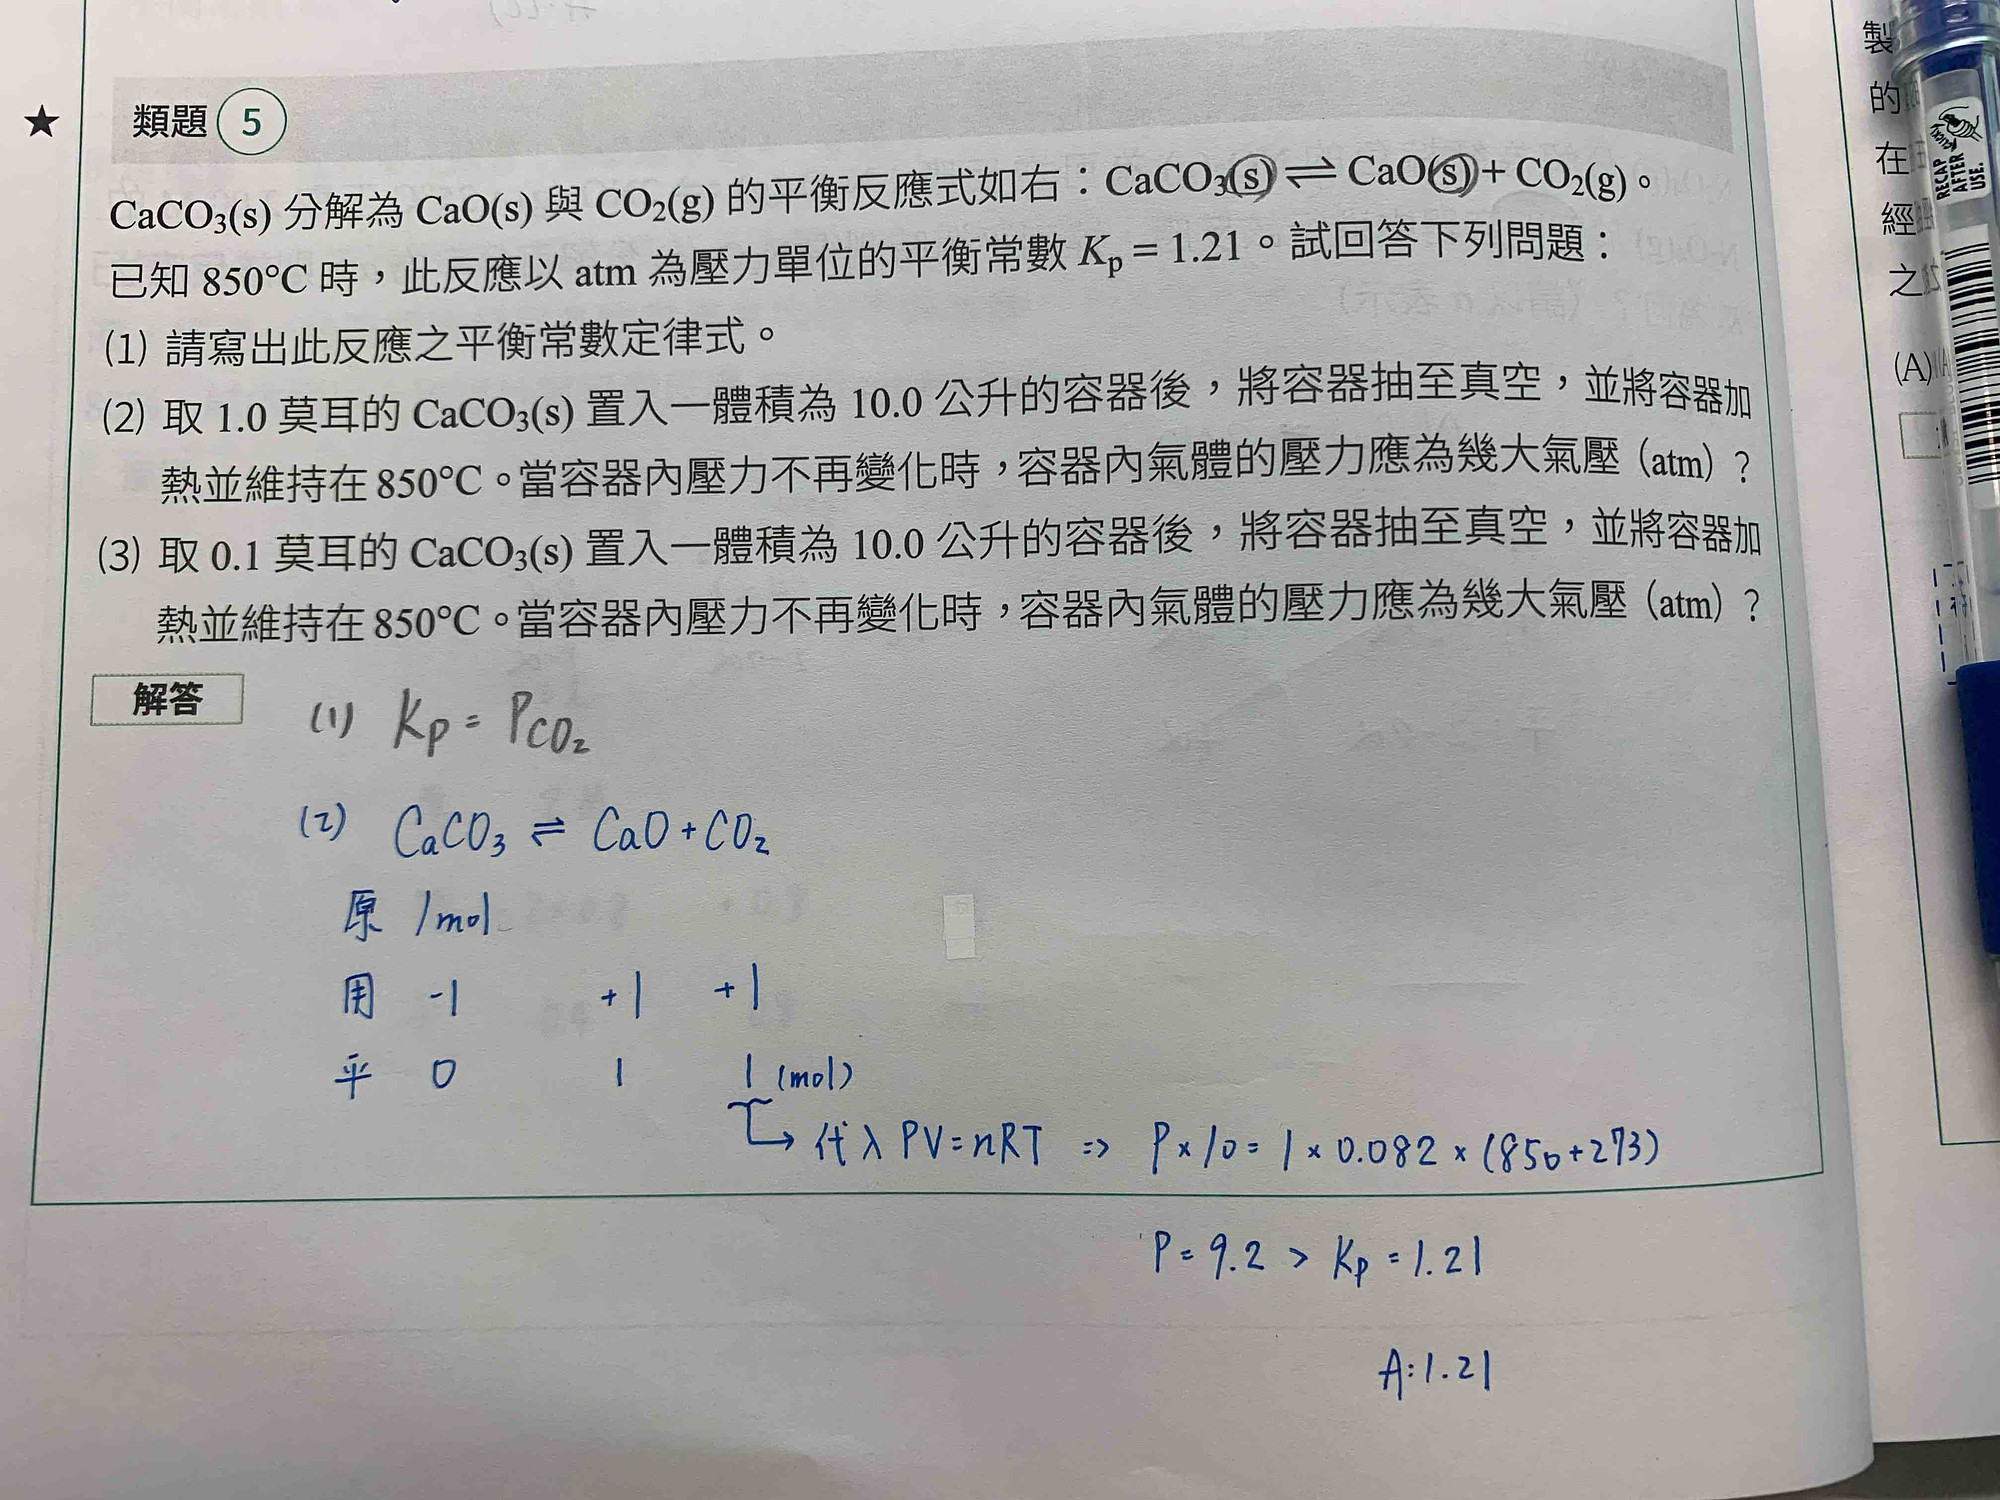 ★ 類題 5
CaCO₃(s) 分解為 CaO(s) 與 CO₂(g) 的平衡反應式如右：CaCO₃(s) ⇌ CaO(s) + CO₂(g)。
已知 850°C 時，此反應以 atm 為壓力單位的平衡常數 Kp = 1.21。試回答下列問題：
(1) 請寫出此反應之平衡常數定律式。
(2) 取 1.0 莫耳的 CaCO₃(s) 置入一體積為 10.0 公升的容器後，將容器抽至真空，並將容器加
熱並維持在 850°C。當容器內壓力不再變化時，容器內氣體的壓力應為幾大氣壓（atm）？
(3) 取 0.1 莫耳的 CaCO₃(s) 置入一體積為 10.0 公升的容器後，將容器抽至真空，並將容器加
熱並維持在 850°C。當容器內壓力不再變化時，容器內氣體的壓力應為幾大氣壓（atm）？
解答
(1) Kp = PCO₂
(2) CaCO₃ ⇌ CaO + CO₂
原 1mol
用 -1 +1 +1
平 0 1 1 (mol)
代入 PV=nRT ⇒ P×10=1×0.082×(850+273)
P=9.2 > Kp=1.21
A:1.21
製
的
在
經
之
(A)
RECAP
AFTER
USE.